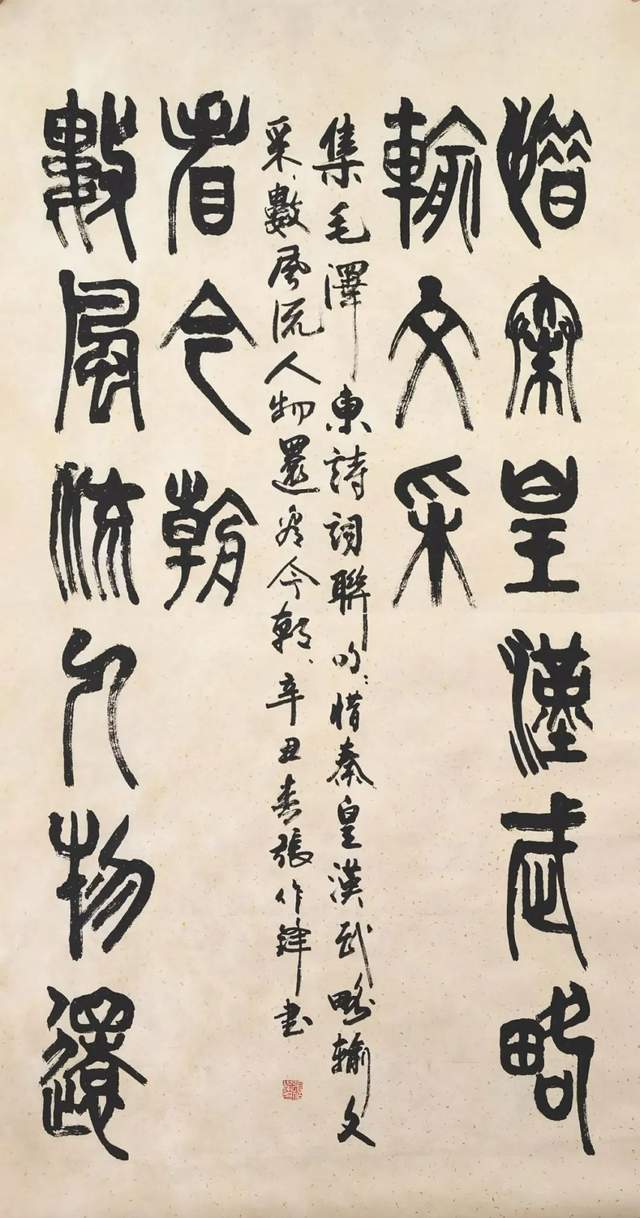 惜秦皇漢武略
輸文采
數風流人物還
看今朝
集毛澤東詩詞聯句：惜秦皇漢武略輸文
采、數風流人物還看今朝、辛丑春張作鋒書